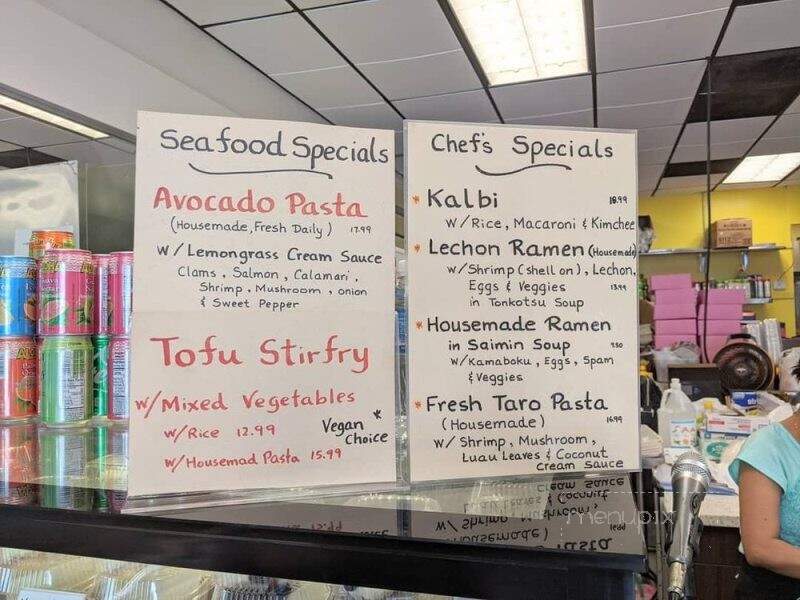 Seafood Specials
Avocado Pasta
(Housemade, Fresh Daily) 17.99
w/Lemongrass Cream Sauce
Clams, Salmon, Calamari,
Shrimp, Mushroom, onion
& Sweet Pepper
Tofu Stirfry
w/Mixed Vegetables
w/Rice 12.99
Vegan *
Choice
w/Housemad Pasta 15.99
Chef's Specials
* Kalbi 18.99
w/Rice, Macaroni & Kimchee
* Lechon Ramen (Housemade)
w/Shrimp (shell on), Lechon,
Eggs & Veggies 13.99
in Tonkotsu Soup
* Housemade Ramen
in Saimin Soup 9.50
w/Kamaboku, Eggs, Spam
& Veggies
* Fresh Taro Pasta
(Housemade) 16.99
w/ Shrimp, Mushroom,
Luau Leaves & Coconut
Cream Sauce
menupix